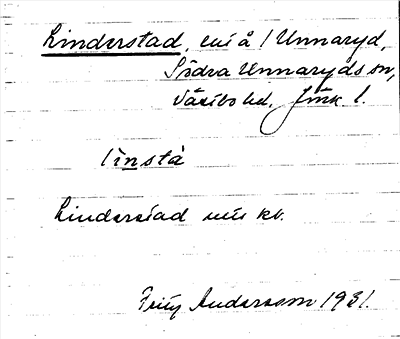 Linderstad, en å i Unnaryd,
Södra Unnaryds sn,
Västbo hd, Jönk l.
linstà
Linderstad
Fritz Andersson 1931.